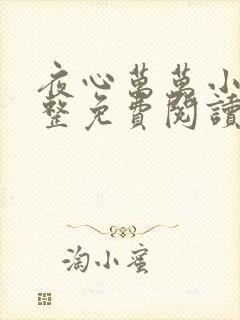 夜心萬萬小
整免費閱讀
淘小蜜